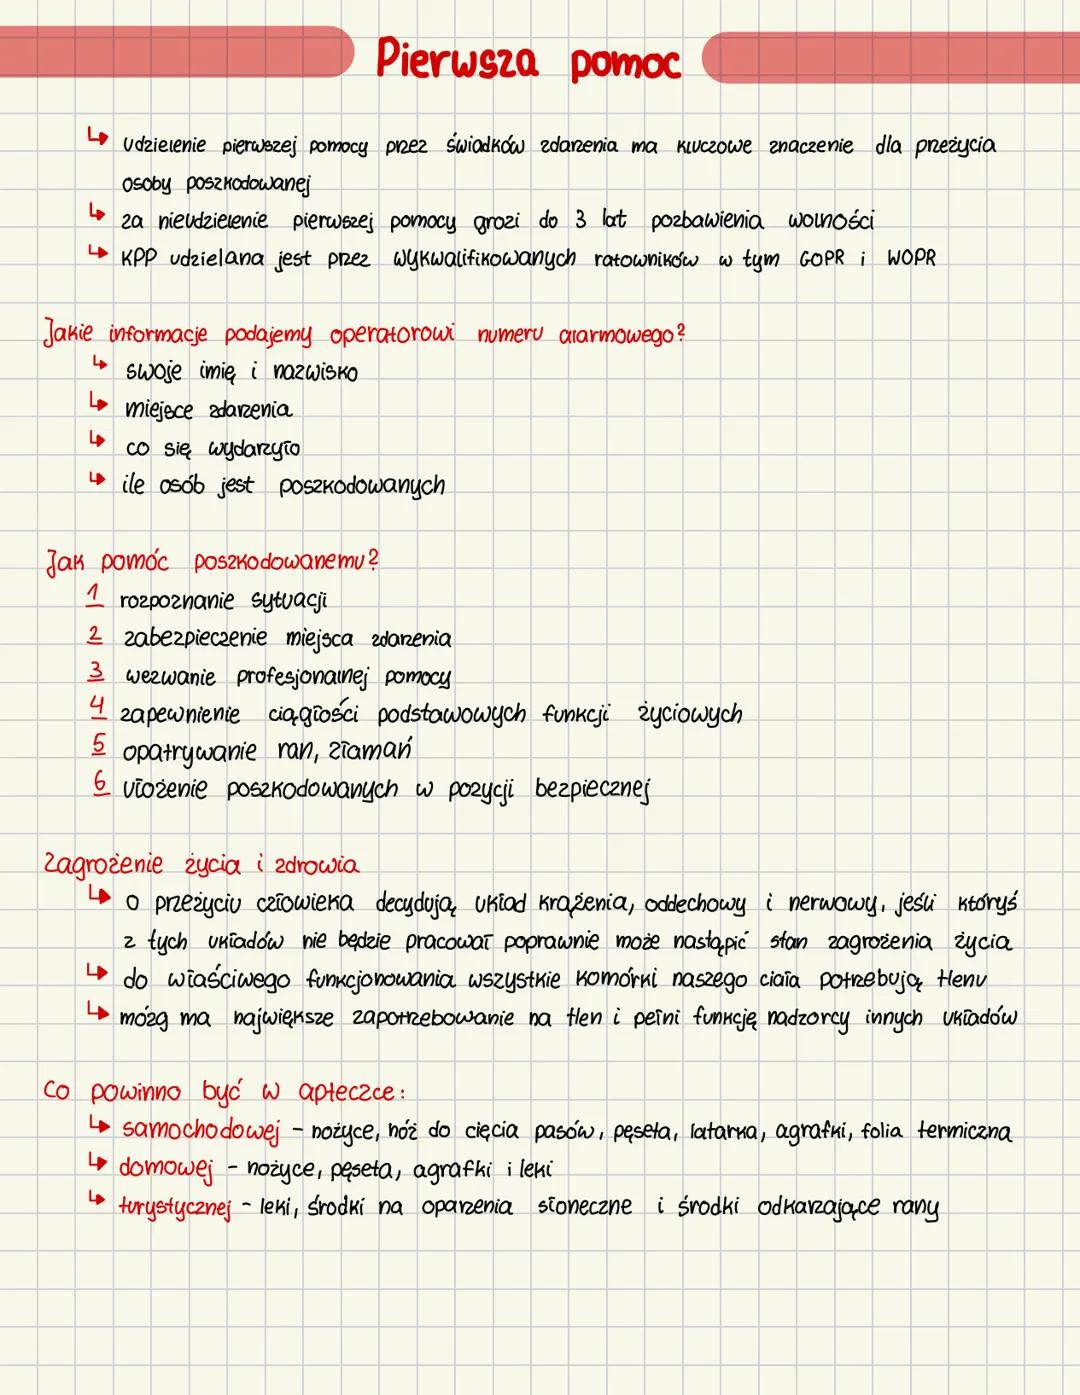 Pierwsza pomoc
↳ udzielenie pierwszej pomocy przez świadków zdarzenia ma kluczowe znaczenie dla przeżycia
osoby poszkodowanej
↳ za nieudzielenie pierwszej pomocy grozi do 3 lat pozbawienia wolności
↳ KPP udzielana jest przez wykwalifikowanych ratowników w tym GOPR i WOPR
Jakie informacje podajemy operatorowi numeru alarmowego?
↳ swoje imię i nazwisko
↳ miejsce zdarzenia
↳ co się wydarzyło
↳ ile osób jest poszkodowanych
Jak pomóc poszkodowanemu?
1 rozpoznanie sytuacji
2 zabezpieczenie miejsca zdarzenia
3 wezwanie profesjonalnej pomocy
4 zapewnienie ciągłości podstawowych funkcji życiowych
5 opatrywanie ran, złamań
6 ułożenie poszkodowanych w pozycji bezpiecznej
Zagrożenie życia i zdrowia
↳ o przeżyciu człowieka decydują układ krążenia, oddechowy i nerwowy, jeśli któryś
z tych układów nie będzie pracować poprawnie może nastąpić stan zagrożenia życia
↳ do właściwego funkcjonowania wszystkie komórki naszego ciała potrzebują tlenu
↳ mózg ma największe zapotrzebowanie na tlen i pełni funkcję nadzorcy innych układów
Co powinno być w apteczce:
↳ samochodowej - nożyce, nóż do cięcia pasów, pęseta, latarka, agrafki, folia termiczna
↳ domowej - nożyce, pęseta, agrafki i leki
↳ turystycznej - leki, środki na oparzenia słoneczne i środki odkażające rany